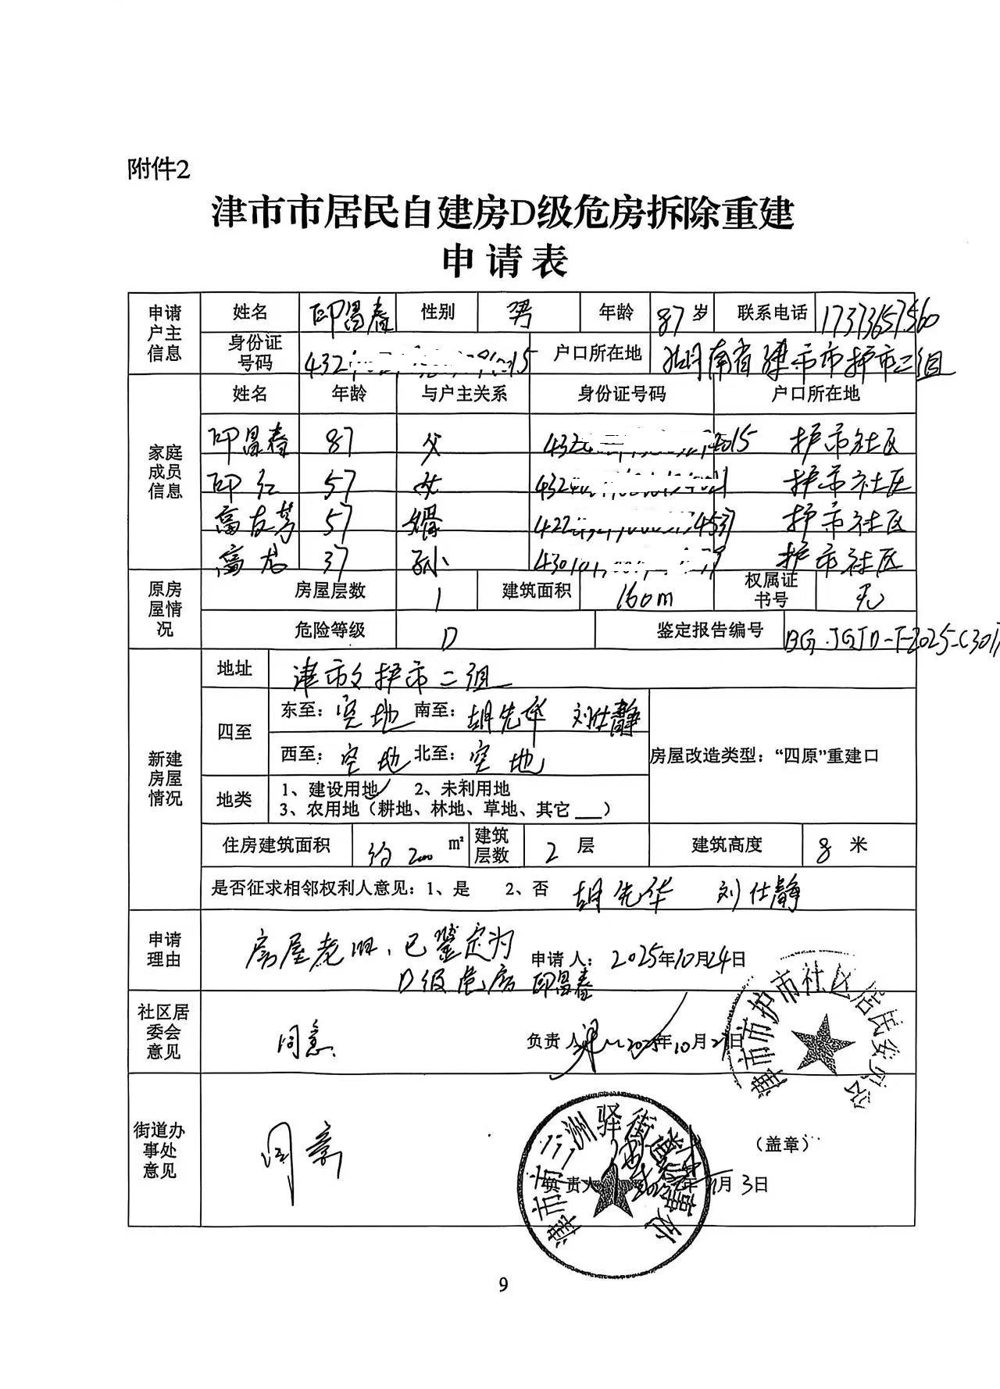 附件2
津市市居民自建房D级危房拆除重建
申请表
申请户主信息 姓名 邱昌春 性别 男 年龄 87岁 联系电话 17373657560
身份证号码 432 015 户口所在地 湖南省津市市护市二组
家庭成员信息 姓名 年龄 与户主关系 身份证号码 户口所在地
邱昌春 87 父 432 015 护市社区
邱红 57 女 432 护市社区
高友芳 57 婿 422 4537 护市社区
高龙 37 孙 430 护市社区
原房屋情况 房屋层数 1 建筑面积 160m 权属证书号 无
危险等级 D 鉴定报告编号 BG.JGJD-F-2025-C301
新建房屋情况 地址 津市文护市二组
四至 东至：空地 南至：胡先华 刘仕静
西至：空地 北至：空地 房屋改造类型：“四原”重建口
地类 1、建设用地✓ 2、未利用地
3、农用地（耕地、林地、草地、其它___）
住房建筑面积 约200 m² 建筑层数 2 层 建筑高度 8 米
是否征求相邻权利人意见：1、是 2、否 胡先华 刘仕静
申请理由 房屋老旧、已鉴定为
D级危房 申请人：邱昌春 2025年10月24日
社区居委会意见 同意 负责人 2025年10月2日
津市市护市社区居民委员会
街道办事处意见 同意 （盖章）
负责人 年11月3日
津市市汪洲驿街道办事处
9